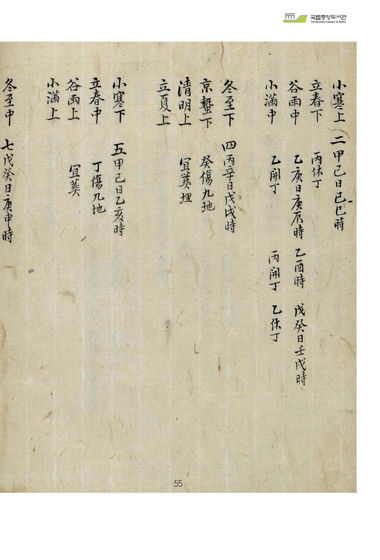 국립중앙도서관
小寒上 二 甲己日己巳時
立春下 丙休丁
谷雨中 乙庚日庚辰時 乙酉時 戊癸日壬戌時
小滿中 乙開丁 丙開丁 乙休丁
冬至下 四 丙辛日戊戌時
京蟄下 癸傷九地
清明上 宜葬埋
立夏上
小寒下 五 甲己日乙亥時
立春中 丁傷九地
谷雨上 宜葬
小滿上
冬至中 七 戊癸日庚申時
55